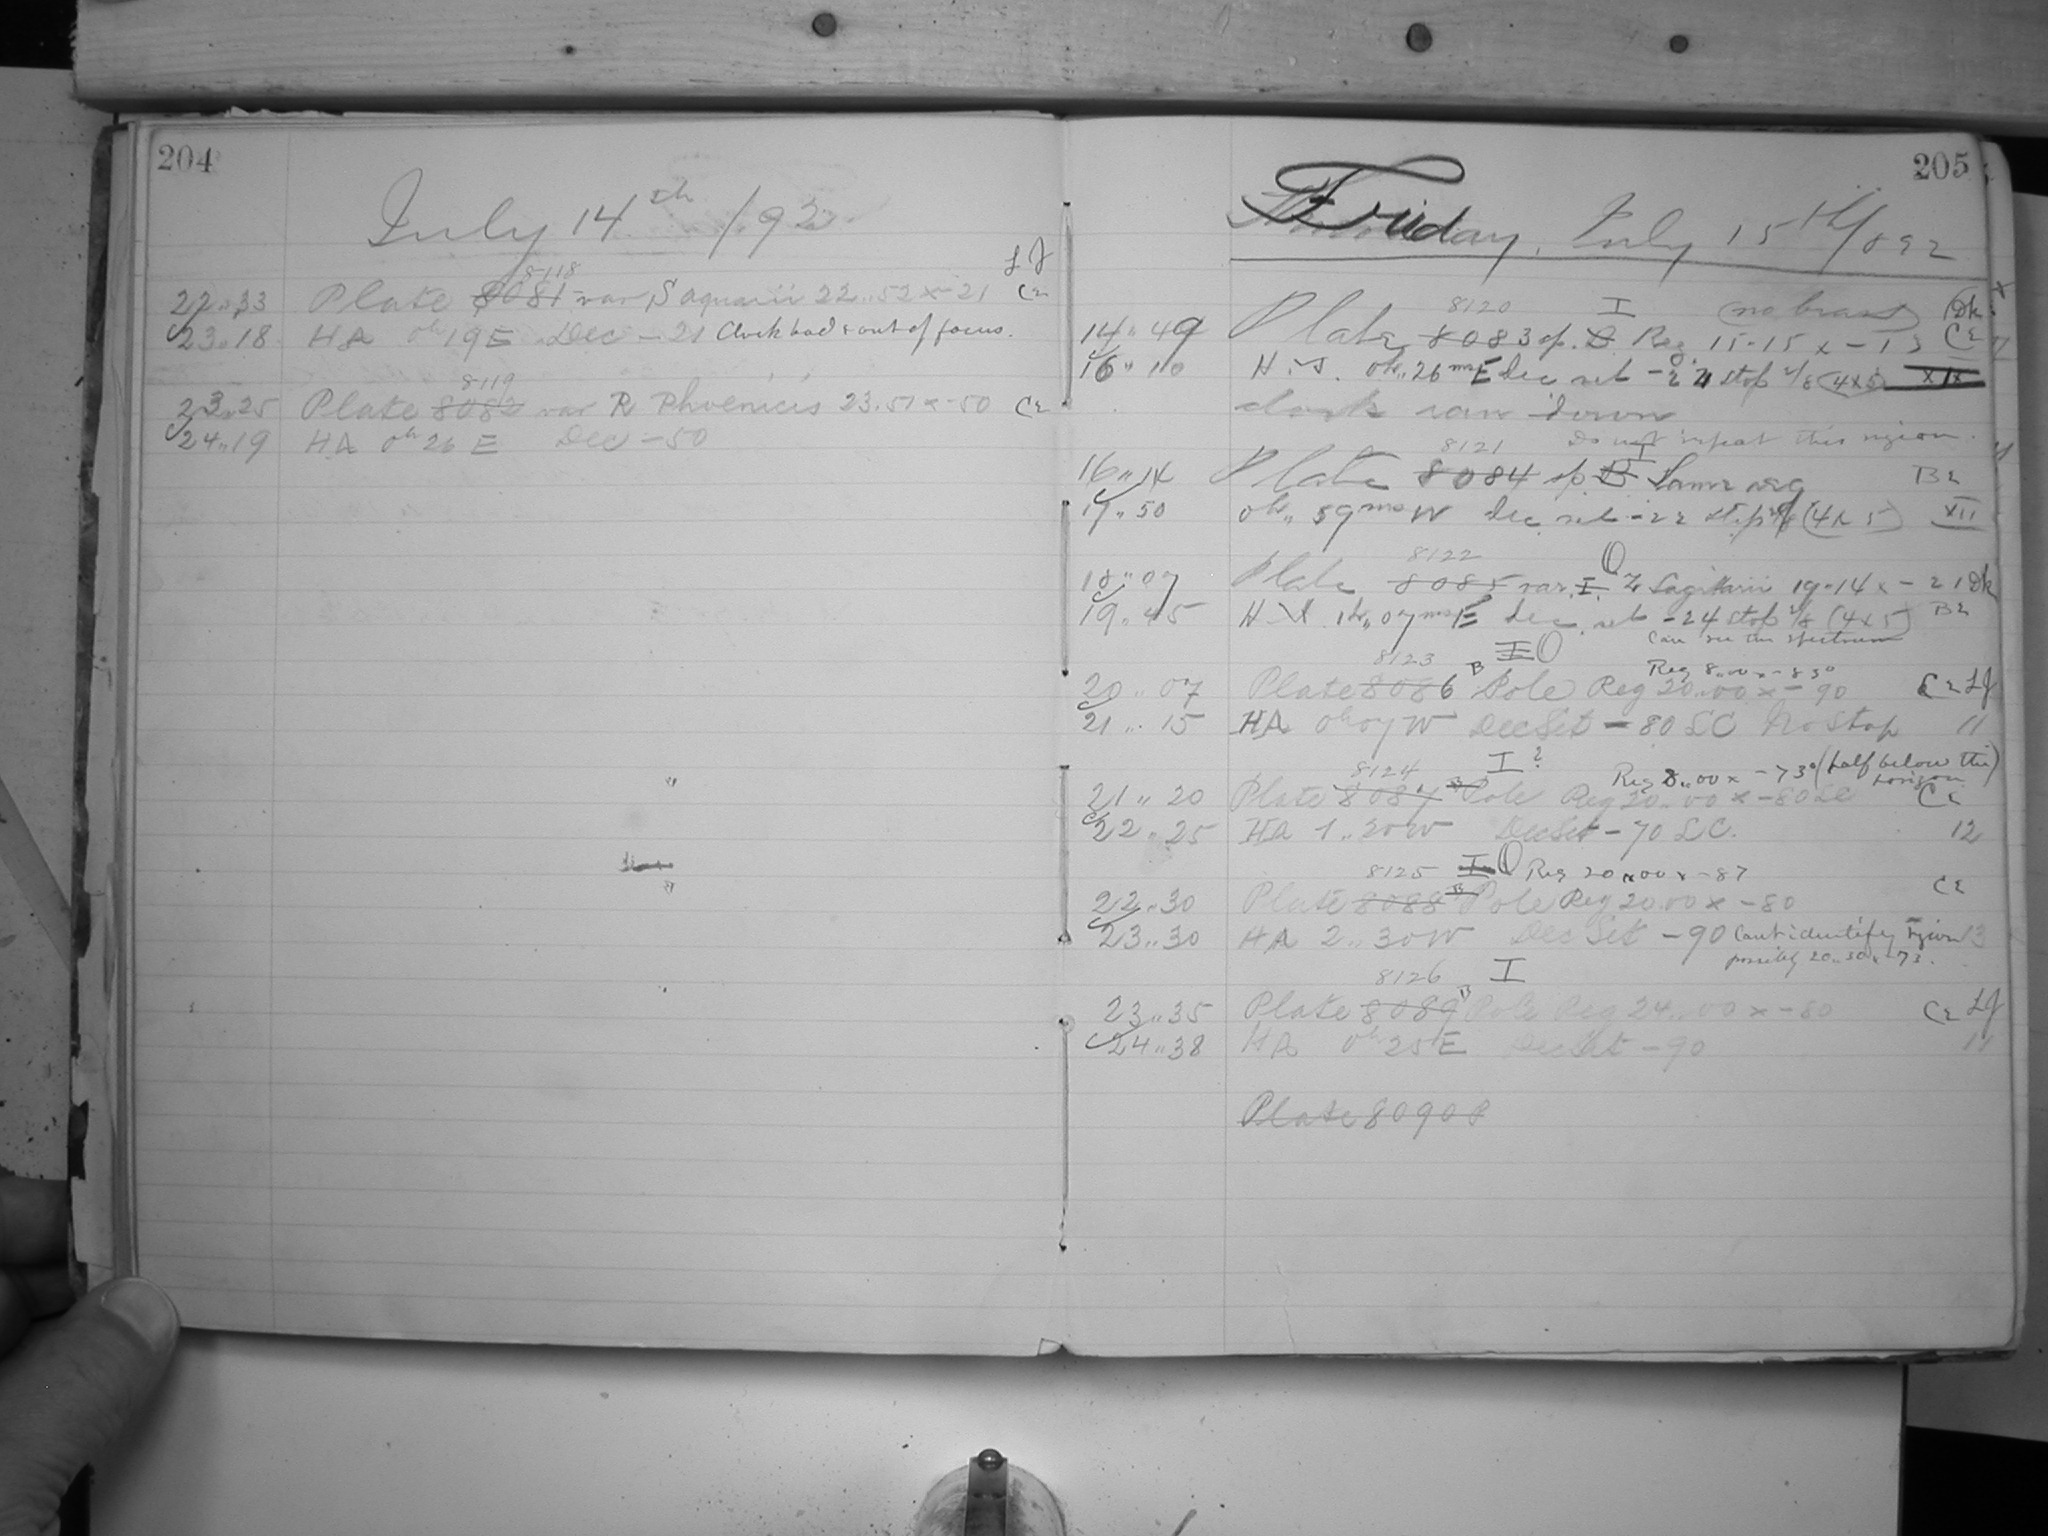 204
July 14th /92
L J
8118
22..33 Plate 8081 var S aquarii 22..52 x -21 CE
23..18 HA 0h 19 E Dec -21 Clock bad & out of focus.
8119
23..25 Plate 8082 var R Phoenicis 23.51 x -50 CE
24..19 HA 0h 26 E Dec -50
205
Friday, July 15th/1892
8120 I (no brass) Dk
14..49 Plate 8083 sp. B Reg. 15-15 x -13 CE
16..10 H.A. 0h..26ms E Dec set -24 stop 2/8 (4x5) XIX
clock ran down
8121 Do not repeat this region.
I
16..14 Plate 8084 sp B Same reg BE
17..50 0h..59ms W Dec set -22 stop 2/8 (4x5) XII
8122 O
18..07 Plate 8085 var. I. Z Sagittarii 19-14 x -21 Dk
19..45 H.A. 1h..07ms E Dec set -24 stop 2/8 (4x5) BE
Can see the spectrum
8123 I O
Reg 8..00 x -830
20..07 Plate 8086 B Pole Reg 20..00 x -90 CE LJ
21..15 HA 0h 07 W Dec Set -80 SC No Stop 11
8124 I?
Reg 8..00 x -73° (half below the horizon)
21..20 Plate 8087 B Pole Reg 20..00 x -80 SC CE
22..25 HA 1..20 W Dec Set -70 SC. 12
8125 I O Reg 20 x 00 x -87
22..30 Plate 8088 B Pole Reg 20.00 x -80 CE
23..30 HA 2..30 W Dec Set -90 Can't identify region 13
possibly 20..30 x -73.
8126 I
23..35 Plate 8089 B Pole Reg 24..00 x -80 CE LJ
24..38 HA 0h 25 E Dec Set -90 11
Plate 8090